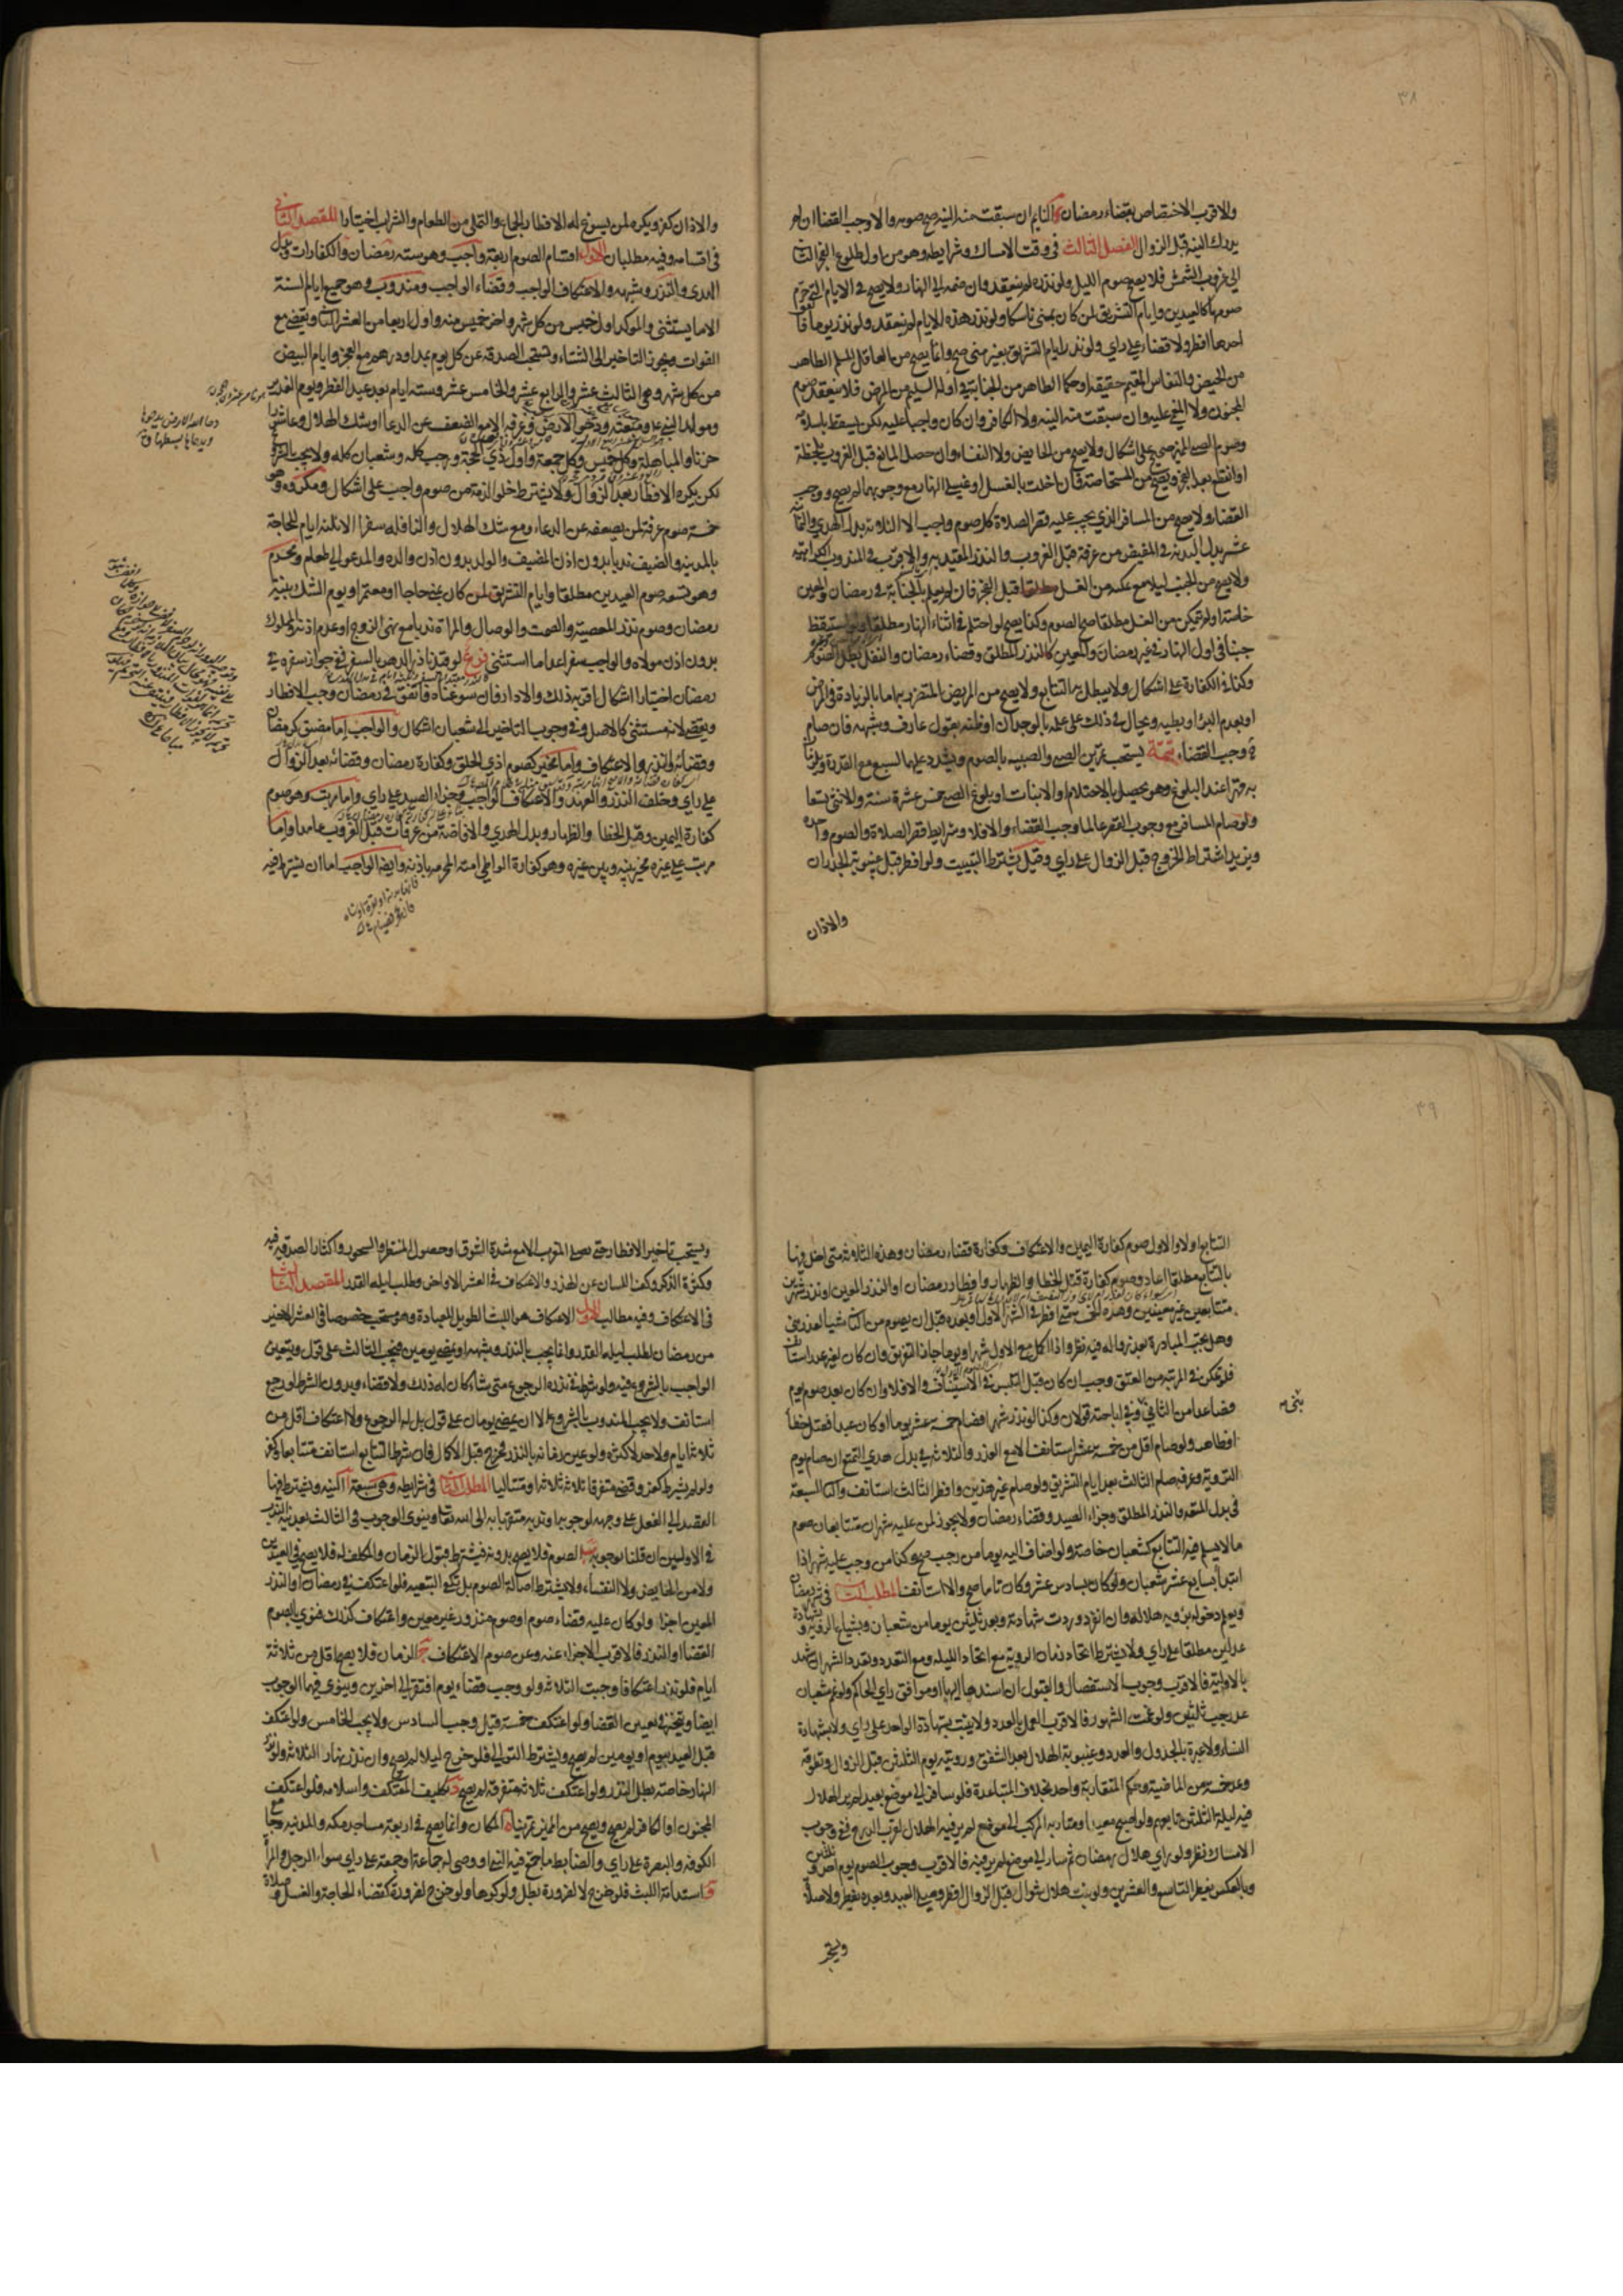 ٣٨
والاقرب الاختصاص بقضاء رمضان النايم ان سبقت منه النيه صح صومه والا وجب القضا ان لم
يدرك النيه قبل الزوال الفصل الثالث في وقت الامساك وشرايطه وهو من اول طلوع الفجر الثا
الي غروب الشمس فلا يصح صوم الليل ولو نذره لم ينعقد وان ضمه الي النهار ولا يصح في الايام التي حرم
صومها كالعيدين وايام التشريق لمن كان بمني ناسكا ولو نذر هذه الايام لم ينعقد ولو نذر يوما فا
احدها افطر ولا قضاء علي راي ولو نذر ايام التشريق بغير مني صح وانما يصح من العاقل المسلم الطاهر
من الحيض والنفاس المقيم حقيقة او حكما الطاهر من الجنابة في اوله السليم من المرض فلا ينعقد صوم
المجنون ولا المغمي عليه وان سبقت منه النيه ولا الكافر وان كان واجبا عليه لكن يسقط باسلامه
وصوم الصبي المميز صحيح علي اشكال ولا يصح من الحايض ولا النفساء وان حصل المانع قبل الغروب بلحظة
او انقطع بعد الفجر ويصح من المستحاضة فان اخلت بالغسل او غسلي النهار مع وجوبهما لم يصح ووجب
القضاء ولا يصح من المسافر الذي يجب عليه قصر الصلاة كل صوم واجب الا الثلاثة بدل الهدي والثمانية
عشر بدل البدنة في المفيض من عرفة قبل الغروب والنذر المقيد به والاقرب في المندوب الكراهية
ولا يصح من الجنب ليلا مع تمكنه من الغسل قبل الفجر فان لم يعلم بالجنابة في رمضان والمعين
خاصة او لم يتمكن من الغسل مطلقا صح الصوم وكذا يصح لو احتلم في اثناء النهار مطلقا ولو استيقظ
جنبا في اول النهار في غير رمضان والمعين كالنذر المطلق وقضاء رمضان والنفل بطل الصوم
وكذا في الكفارة علي اشكال ولا يبطل بها التتابع ولا يصح من المريض المتضرر به اما بالزيادة في المرض
او بعدم البرء او بطئه ويحال في ذلك علي علمه بالوجدان او ظنه بقول عارف وشبهه فان صام
وجب القضاء تتمة يستحب تمرين الصبي والصبيه بالصوم ويشدد عليهما لسبع مع القدرة ويلزمان
به قهرا عند البلوغ وهو يحصل بالاحتلام او الانبات او بلوغ الصبي خمس عشرة سنة والانثي تسعا
ولو صام المسافر مع وجوب القصر عالما وجب القضاء والا فلا وشرايط قصر الصلاة والصوم واحده
ويزيد اشتراط الخروج قبل الزوال علي راي وقيل يشترط التبييت ولو افطر قبل غيبوبة الجدران
والاذان
والاذان كفر ويكره لمن يسوغ له الافطار الجماع والتملي من الطعام والشراب اختيارا المقصد الثاني
في اقسامه وفيه مطلبان الاول اقسام الصوم اربعة واجب وهو ستة رمضان والكفارات وبدل
الهدي والنذر وشبهه والاعتكاف الواجب وقضاء الواجب ومندوب وهو جميع ايام السنة
الا ما يستثني والموكد اول خميس من كل شهر واخر خميس منه واول اربعا من العشر الثا ويقضي مع
الفوات ويجوز التاخير الي الشتاء ويستحب الصدقة عن كل يوم بمد او درهم مع العجز وايام البيض
من كل شهر وهي الثالث عشر والرابع عشر والخامس عشر وستة ايام بعد عيد الفطر ويوم الغدير
ومولد النبي ع ومبعثه ودحو الارض وعرفة الا مع الضعف عن الدعا او شك الهلال وعاشورا
حزنا والمباهلة وكل خميس وكل جمعة واول ذي الحجة ورجب كله وشعبان كله ولا يجب بالشروع
لكن يكره الافطار بعد الزوال ولا يشترط خلو الذمة من صوم واجب علي اشكال ومكروه وهو
خمسة صوم عرفة لمن يضعفه عن الدعاء ومع شك الهلال والنافلة سفرا الا ثلثة ايام للحاجة
بالمدينة والضيف ندبا بدون اذن المضيف والولد بدون اذن والده والمدعو الي طعام ومحرم
وهو تسعة صوم العيدين مطلقا وايام التشريق لمن كان بمني حاجا او معتمرا ويوم الشك بنية
رمضان وصوم نذر المعصية والصمت والوصال والمراة ندبا مع نهي الزوج او عدم اذنه والمملوك
بدون اذن مولاه والواجب سفرا عدا ما استثني فرع لو قيد ناذر الدهر بالسفر ففي جواز سفره في
رمضان اختيارا اشكال اقربه ذلك والا دار فان سوغناه فاتفق في رمضان وجب الافطار
ويقضي لانه مستثني كالاصل وفي وجوب التاخير الي شعبان اشكال والواجب اما مضيق كرمضان
وقضائه والنذر والاعتكاف واما مخير كصوم اذي الحلق وكفارة رمضان وقضائه بعد الزوال
علي راي وخلف النذر والعهد والاعتكاف الواجب وجزاء الصيد علي راي واما مرتب وهو صوم
كفارة اليمين وقتل الخطا والظهار وبدل الهدي والافاضة من عرفات قبل الغروب عامدا واما
مرتب علي غيره مخير بينه وبين غيره وهو كفارة الواطي امته المحرمة باذنه وايضا الواجب اما ان يشترط فيه
دحا الله الارض يدحوها
٣٩
التتابع اولا والاول صوم كفارة اليمين والاعتكاف وكفارة قضاء رمضان وهذه الثلاثة متي اخل فيها
بالتتابع مطلقا اعاد وصوم كفارة قتل الخطا والظهار وافطار رمضان او النذر المعين او نذر شهرين
متتابعين غير معينين وهذه الخمس متي افطر في الشهر الاول او بعده قبل ان يصوم من الثا شيا لعذر بني
وهل يجب المبادرة بعد زواله فيه نظر واذا اكمل مع الاول شهرا ويوما جاز التفريق وان كان لغير عذر استا
فلو تمكن في المرتبة من العتق وجب ان كان قبل التلبس في الاستيناف والا فلا وان كان بعد صوم يوم
فصاعدا من الثاني بني وفي اباحته قولان وكذا لو نذر شهرا فصام خمسة عشر يوما او كان عبدا فقتل خطأ
او ظاهر ولو صام اقل من خمسة عشر استانف الا مع العذر والثلاثة في بدل هدي التمتع ان صام يوم
التروية وعرفة صام الثالث بعد ايام التشريق ولو صام غير هذين وافطر الثالث استانف واما السبعة
في بدل المتعة والنذر المطلق وجزاء الصيد وقضاء رمضان ولا يجوز لمن عليه شهران متتابعان صوم
ما لا يسلم فيه التتابع كشعبان خاصة ولو اضاف اليه يوما من رجب صح وكذا من وجب عليه شهر اذا
ابتدأ بسابع عشر شعبان ولو كان بسادس عشر وكان تاما صح والا استانف المطلب الثا في شهر رمضان
ويعلم دخوله برؤية هلاله وان انفرد وردت شهادته وبعد ثلثين يوما من شعبان وبشياع الرؤية وبشهادة
عدلين مطلقا علي راي ولا يشترط اتحاد زمان الروية مع اتحاد الليلة ومع التعدد وتعدد الشهر ان شهد
بالاولية فالاقرب وجوب الاستفصال والقبول ان اسندها اليها او موافق راي الحاكم ولو غم شعبان
عد رجب ثلثين ولو غمت الشهور فالاقرب العمل بالعدد ولا يثبت بشهادة الواحد علي راي ولا بشهادة
النساء ولا عبرة بالجدول والعدد وغيبوبة الهلال بعد الشفق ورويته يوم الثلثين قبل الزوال وتطوقه
وعد خمسة من الماضية وحكم المتقاربة واحد بخلاف المتباعدة فلو سافر الي موضع بعيد لم ير الهلال
فيه ليلة الثلثين تابعهم ولو اصبح معيدا وسار به المركب الي موضع لم ير فيه الهلال لقرب الدرج ففي وجوب
الامساك نظر ولو راي هلال رمضان ثم سار الي موضع لم ير فيه فالاقرب وجوب الصوم يوم احد وثلثين
وبالعكس يفطر التاسع والعشرين ولو ثبت هلال شوال قبل الزوال افطر وصلي العيد وبعده يفطر ولا صلاة
ويستحب
ويستحب تاخير الافطار حتي يصلي المغرب الا مع شدة الشوق او حصول المنتظر والسحور واكثار الصدقة فيه
وكثرة الذكر وكف اللسان عن الهذر والاعتكاف في العشر الاواخر وطلب ليلة القدر المقصد الثالث
في الاعتكاف وفيه مطالب الاول الاعتكاف هو اللبث الطويل للعبادة وهو مستحب خصوصا في العشر الاخير
من رمضان لطلب ليلة القدر وانما يجب بالنذر وشبهه او بمضي يومين فيجب الثالث علي قول ويتعين
الواجب بالشروع فيه ولو شرط في نذره الرجوع متي شاء كان له ذلك ولا قضاء وبدون الشرط لو رجع
استانف ولا يجب المندوب بالشروع الا ان يمضي يومان علي قول بل له الرجوع ولا اعتكاف اقل من
ثلاثة ايام ولا حد لاكثره ولو عين زمانه بالنذر فخرج قبل الاكمال فان شرط التتابع استانف متتابعا وكفر
ولو لم يشرط كفر وقضي متفرقا ثلاثة ثلاثة او متتاليا المطلب الثا في شرايطه وهي سبعة ا النيه ويشترط فيها
القصد الي الفعل علي وجهه لوجوبه او ندبه متقربا به الي الله تعا وينوي الوجوب في الثالث بعد نية الندب
في الاولين ان قلنا بوجوبه ب الصوم فلا يصح بدونه فيشترط قبول الزمان والمكلف له فلا يصح في العيدين
ولا من الحايض ولا النفساء ولا يشترط اصالة الصوم بل تكفي التبعية فلو اعتكف في رمضان او النذر
المعين اجزا ولو كان عليه قضاء صوم او صوم منذور غير معين واعتكاف كذلك فنوي بالصوم
القضا او النذر فالاقرب الاجزاء عنه وعن صوم الاعتكاف ج الزمان فلا يصح اقل من ثلاثة
ايام فلو نذر اعتكافا وجبت الثلاثة ولو وجب قضاء يوم افتقر الي اخرين وينوي فيهما الوجوب
ايضا ويتخير في تعيين القضا ولو اعتكف خمسة قيل وجب السادس ولا يجب الخامس ولو اعتكف
قبل العيد بيوم او يومين لم يصح ويشترط التوالي فلو خرج ليلا لم يصح وان نذر نهار الثلاثة ولو نذر
النهار خاصة بطل النذر ولو اعتكف ثلاثة متفرقة لم يصح د تكليف المعتكف واسلامه فلو اعتكف
المجنون او الكافر لم يصح ويصح من المميز تمرينا ه المكان وانما يصح في اربعة مساجد مكه والمدينه وجامع
الكوفة والبصرة علي راي والضابط ما جمع فيه النبي او وصي له جماعة او جمعة علي راي سواء الرجل والمرأ
و استدامة اللبث فلو خرج لا لضرورة بطل ولو كرها ولو خرج لضرورة كقضاء الحاجة والغسل وصلاة